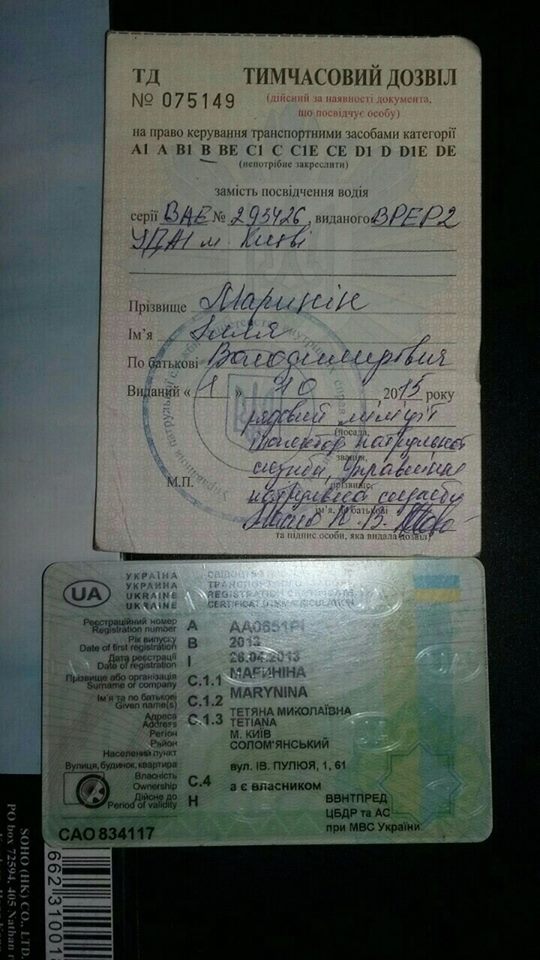 ТД ТИМЧАСОВИЙ ДОЗВІЛ
№ 075149 (дійсний за наявності документа,
що посвідчує особу)
на право керування транспортними засобами категорії
A1 A B1 B BE C1 C C1E CE D1 D D1E DE
(непотрібне закреслити)
замість посвідчення водія
серії ВАЕ № 295426, виданого ВРЕР2
УДАІ м. Києві
Прізвище Маринін
Ім'я Ілля
По батькові Володимирович
Виданий « 1 » 10 2015 року
рядовий міліції
(посада,
інспектор патрульної
звання,
служби, Управління
М.П. прізвище,
патрульної служби
ім'я, по батькові
та підпис особи, яка видала дозвіл)
UA УКРАЇНА
УКРАИНА
UKRAINE REGISTRATION CERTIFICATE
UKRAINE
Реєстраційний номер
Registration number A AA0651PI
Рік випуску
Date of first registration B 2013
Дата реєстрації
Date of registration I 26.04.2013
Прізвище або організація
Surname or company C.1.1 МАРИНІНА
MARYNINA
Ім'я та по батькові
Given name(s) C.1.2 ТЕТЯНА МИКОЛАЇВНА
TETIANA
Адреса
Address C.1.3
Регіон М. КИЇВ
Район СОЛОМ'ЯНСЬКИЙ
Населений пункт
Вулиця, будинок, квартира вул. ІВ. ПУЛЮЯ, 1, 61
Власність
Ownership C.4 а є власником
Дійсне до
Period of validity H
ВВНТПРЕД
ЦБДР та АС
при МВС України
САО 834117
SOHO (HK) CO., LTD.
PO box 72594, 405 Nathan
6623100